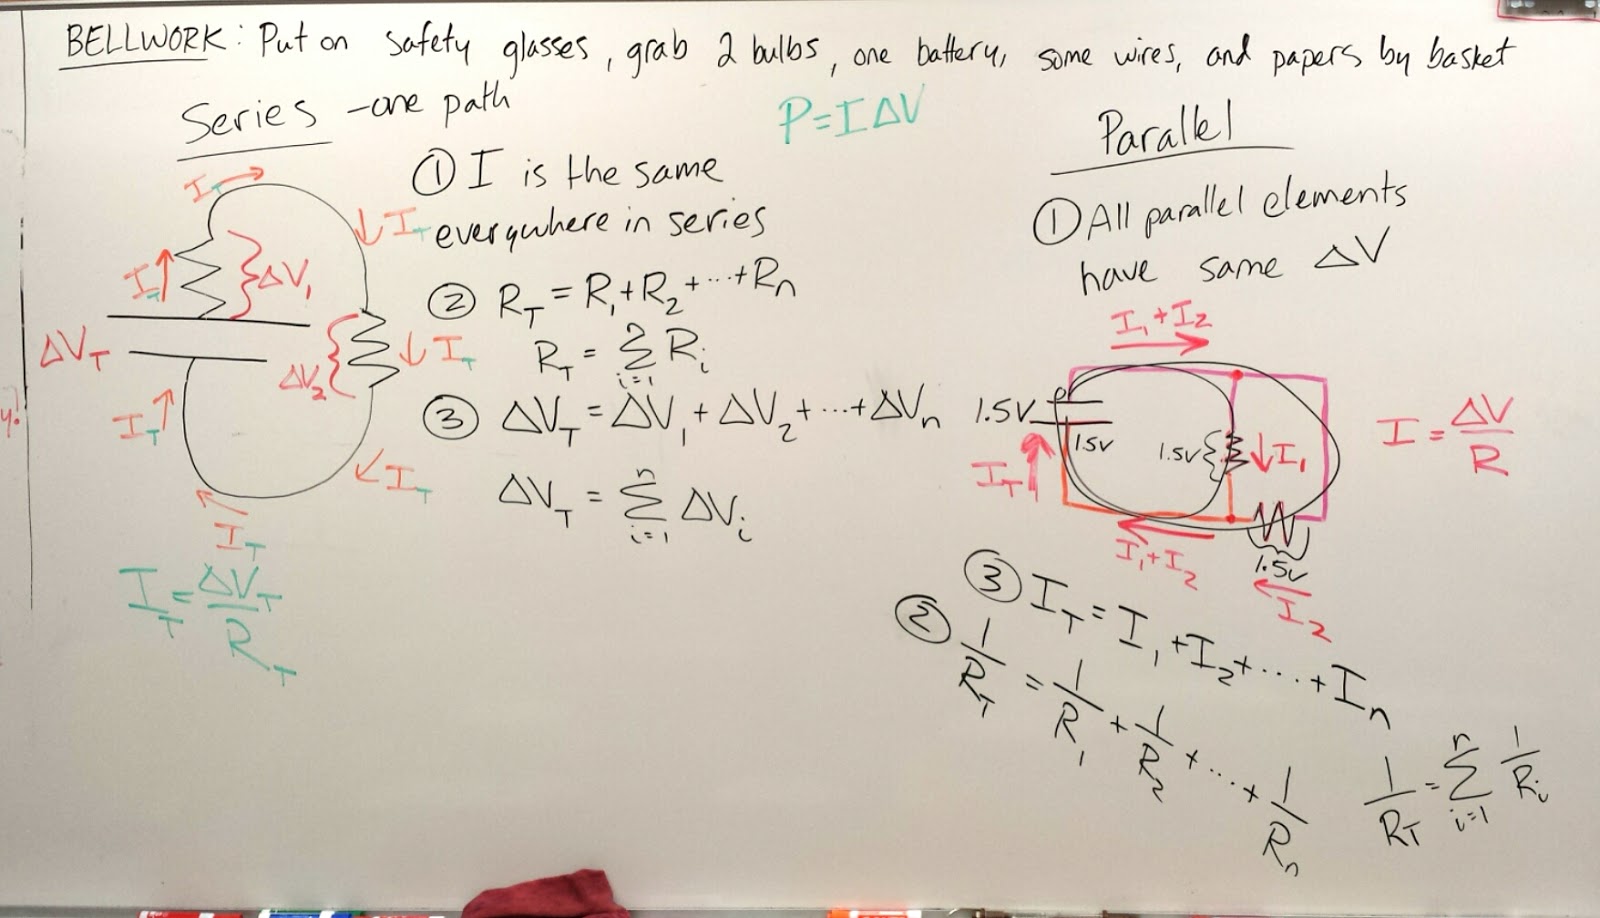 BELLWORK: Put on safety glasses, grab 2 bulbs, one battery, some wires, and papers by basket
Series - one path
P = I ΔV
① I is the same
everywhere in series
② R_T = R_1 + R_2 + ... + R_n
R_T = Σ_{i=1}^{n} R_i
③ ΔV_T = ΔV_1 + ΔV_2 + ... + ΔV_n
ΔV_T = Σ_{i=1}^{n} ΔV_i
I_T
I_T
I_T
ΔV_1
ΔV_T
ΔV_2
I_T
I_T
I_T
I_T
I_T = ΔV_T / R_T
Parallel
① All parallel elements
have same ΔV
I_1 + I_2
1.5V
1.5V
1.5V
I_1
I_T
I = ΔV / R
I_1 + I_2
1.5V
I_2
③ I_T = I_1 + I_2 + ... + I_n
② 1/R_T = 1/R_1 + 1/R_2 + ... + 1/R_n
1/R_T = Σ_{i=1}^{n} 1/R_i